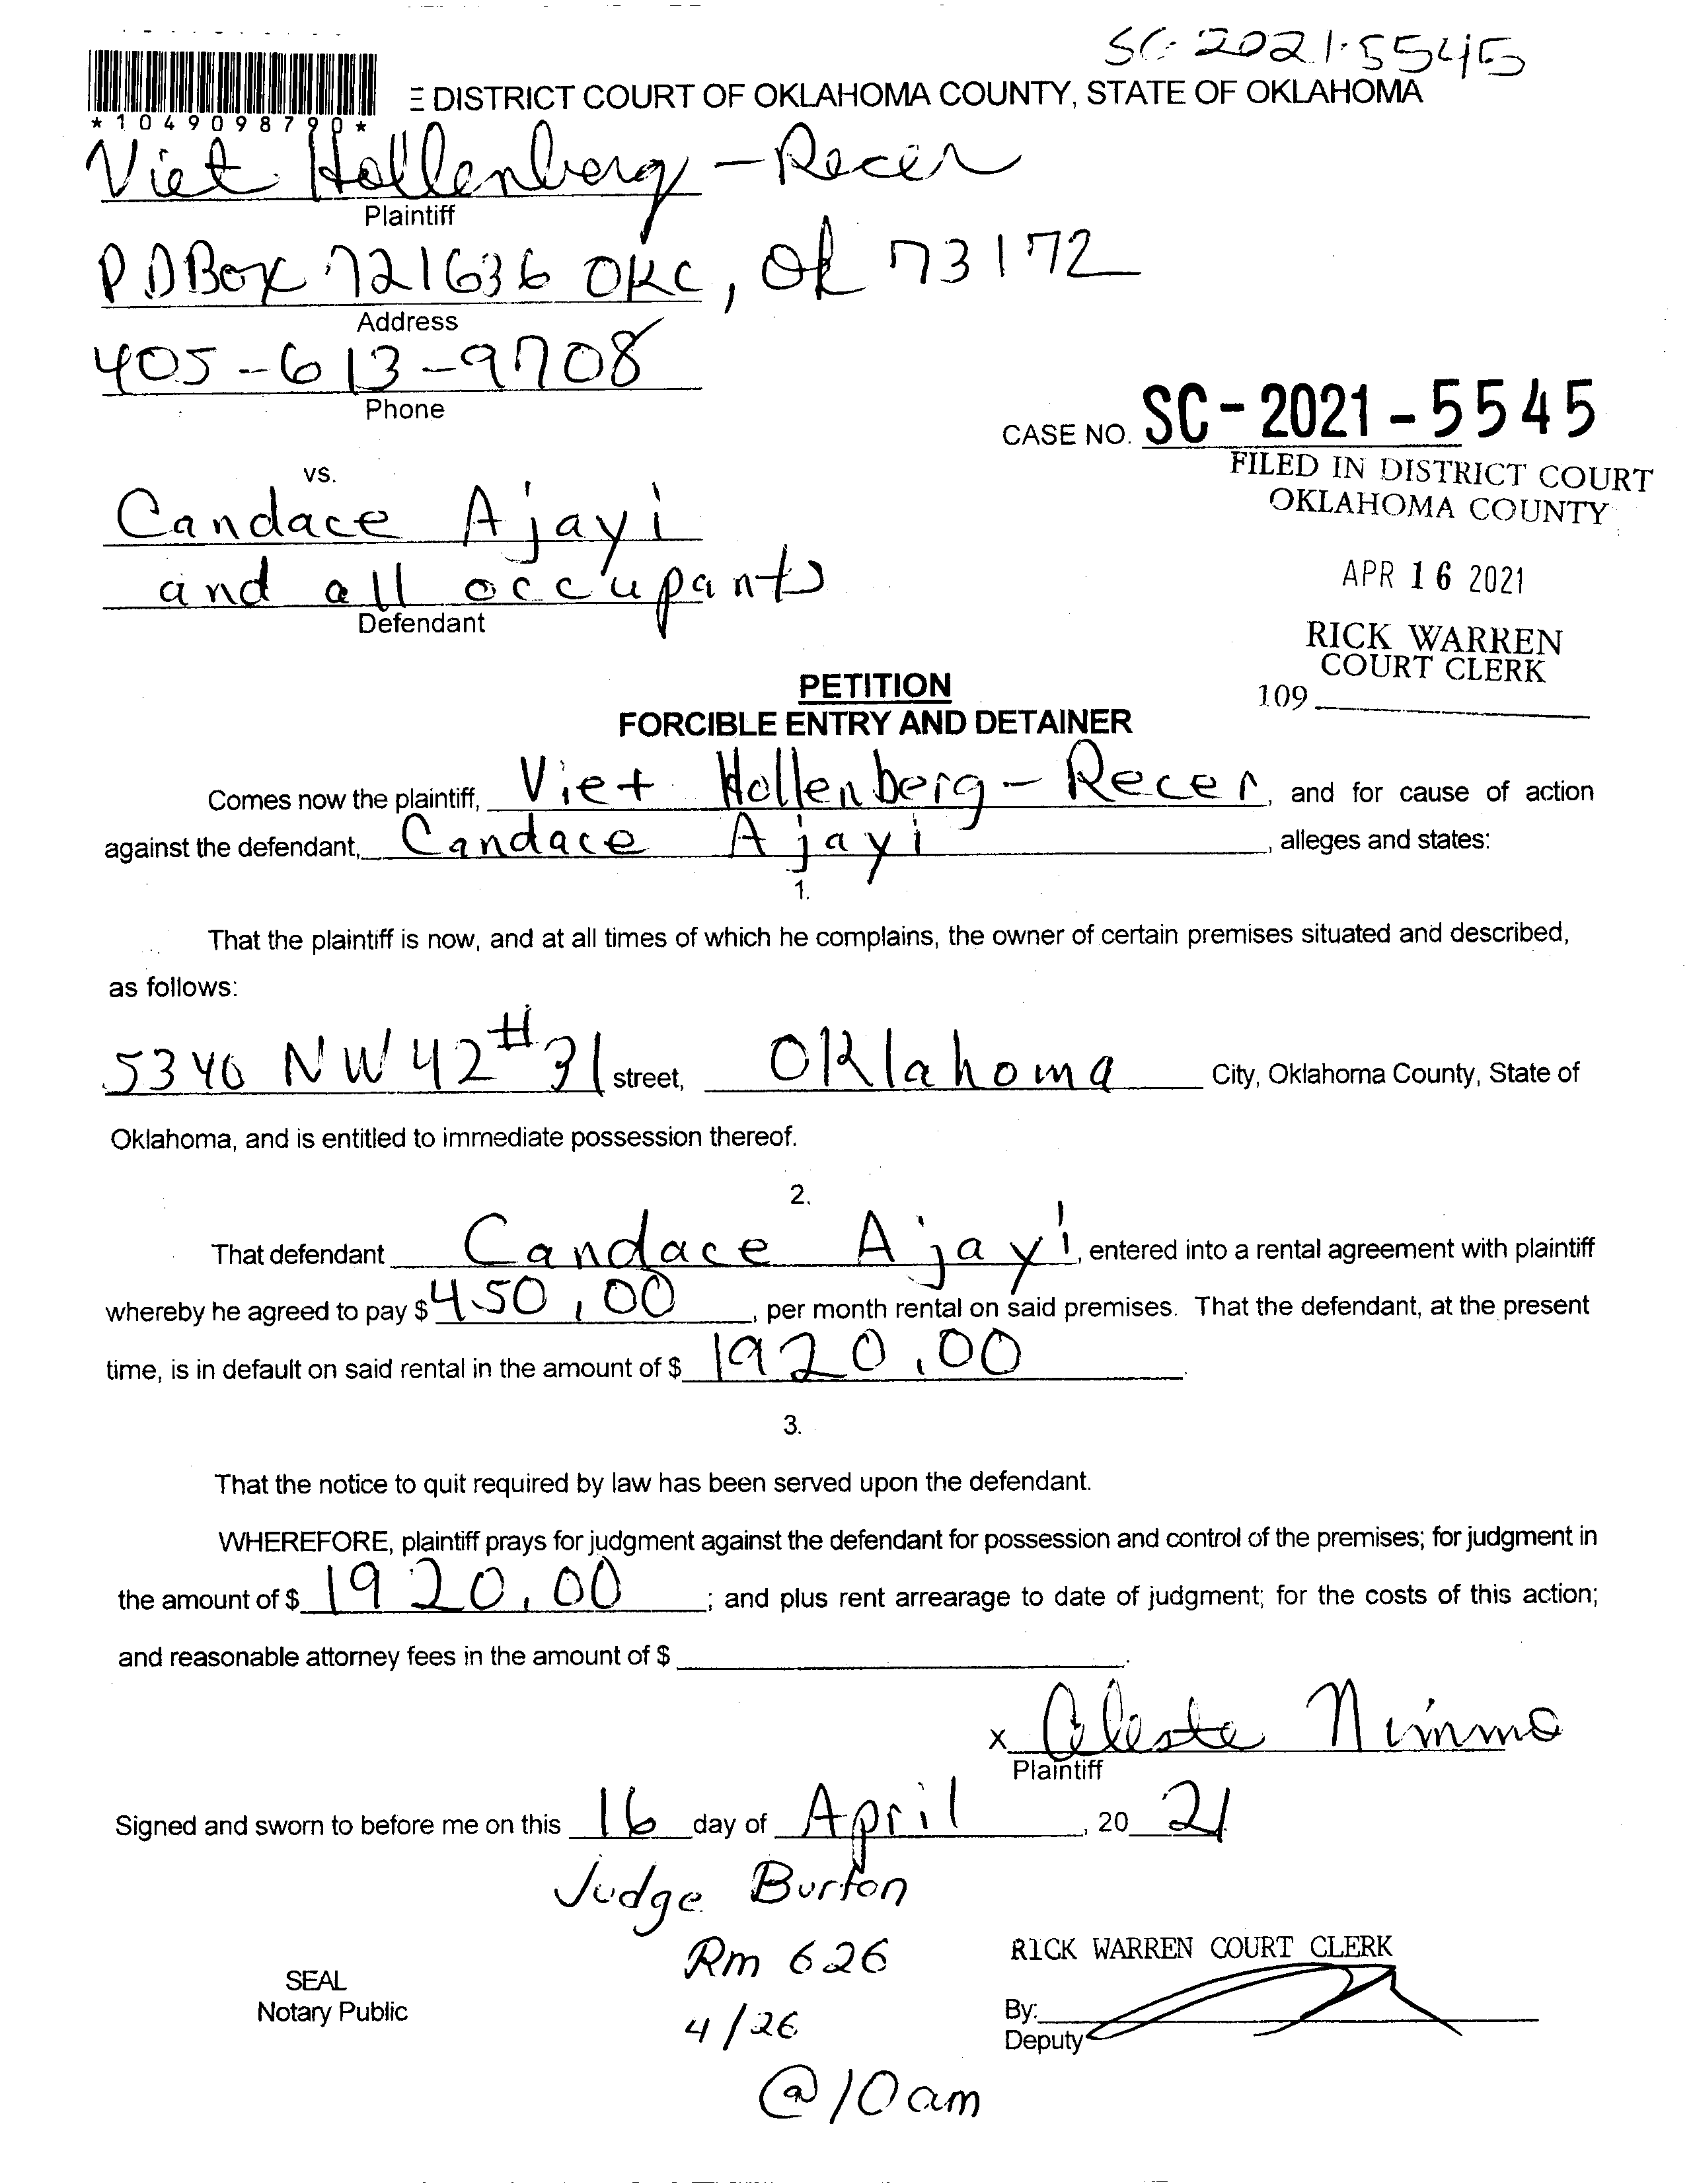 SC-2021-5545
E DISTRICT COURT OF OKLAHOMA COUNTY, STATE OF OKLAHOMA
*1049098790*
Viet Hollenberg-Recer
Plaintiff
P O Box 721636 OKC, OK 73172
Address
405-613-9708
Phone
CASE NO. SC-2021-5545
FILED IN DISTRICT COURT
OKLAHOMA COUNTY
vs.
Candace Ajayi
and all occupants
Defendant
APR 16 2021
RICK WARREN
COURT CLERK
109
PETITION
FORCIBLE ENTRY AND DETAINER
Comes now the plaintiff, Viet Hollenberg-Recer, and for cause of action
against the defendant, Candace Ajayi, alleges and states:
1.
That the plaintiff is now, and at all times of which he complains, the owner of certain premises situated and described,
as follows:
5340 NW 42 #31 street, Oklahoma City, Oklahoma County, State of
Oklahoma, and is entitled to immediate possession thereof.
2.
That defendant Candace Ajayi, entered into a rental agreement with plaintiff
whereby he agreed to pay $ 450.00, per month rental on said premises. That the defendant, at the present
time, is in default on said rental in the amount of $ 1920.00.
3.
That the notice to quit required by law has been served upon the defendant.
WHEREFORE, plaintiff prays for judgment against the defendant for possession and control of the premises; for judgment in
the amount of $ 1920.00; and plus rent arrearage to date of judgment; for the costs of this action;
and reasonable attorney fees in the amount of $ .
x Celeste Nimmo
Plaintiff
Signed and sworn to before me on this 16 day of April, 20 21
Judge Burton
Rm 626
4/26
@10am
SEAL
Notary Public
RICK WARREN COURT CLERK
By:
Deputy